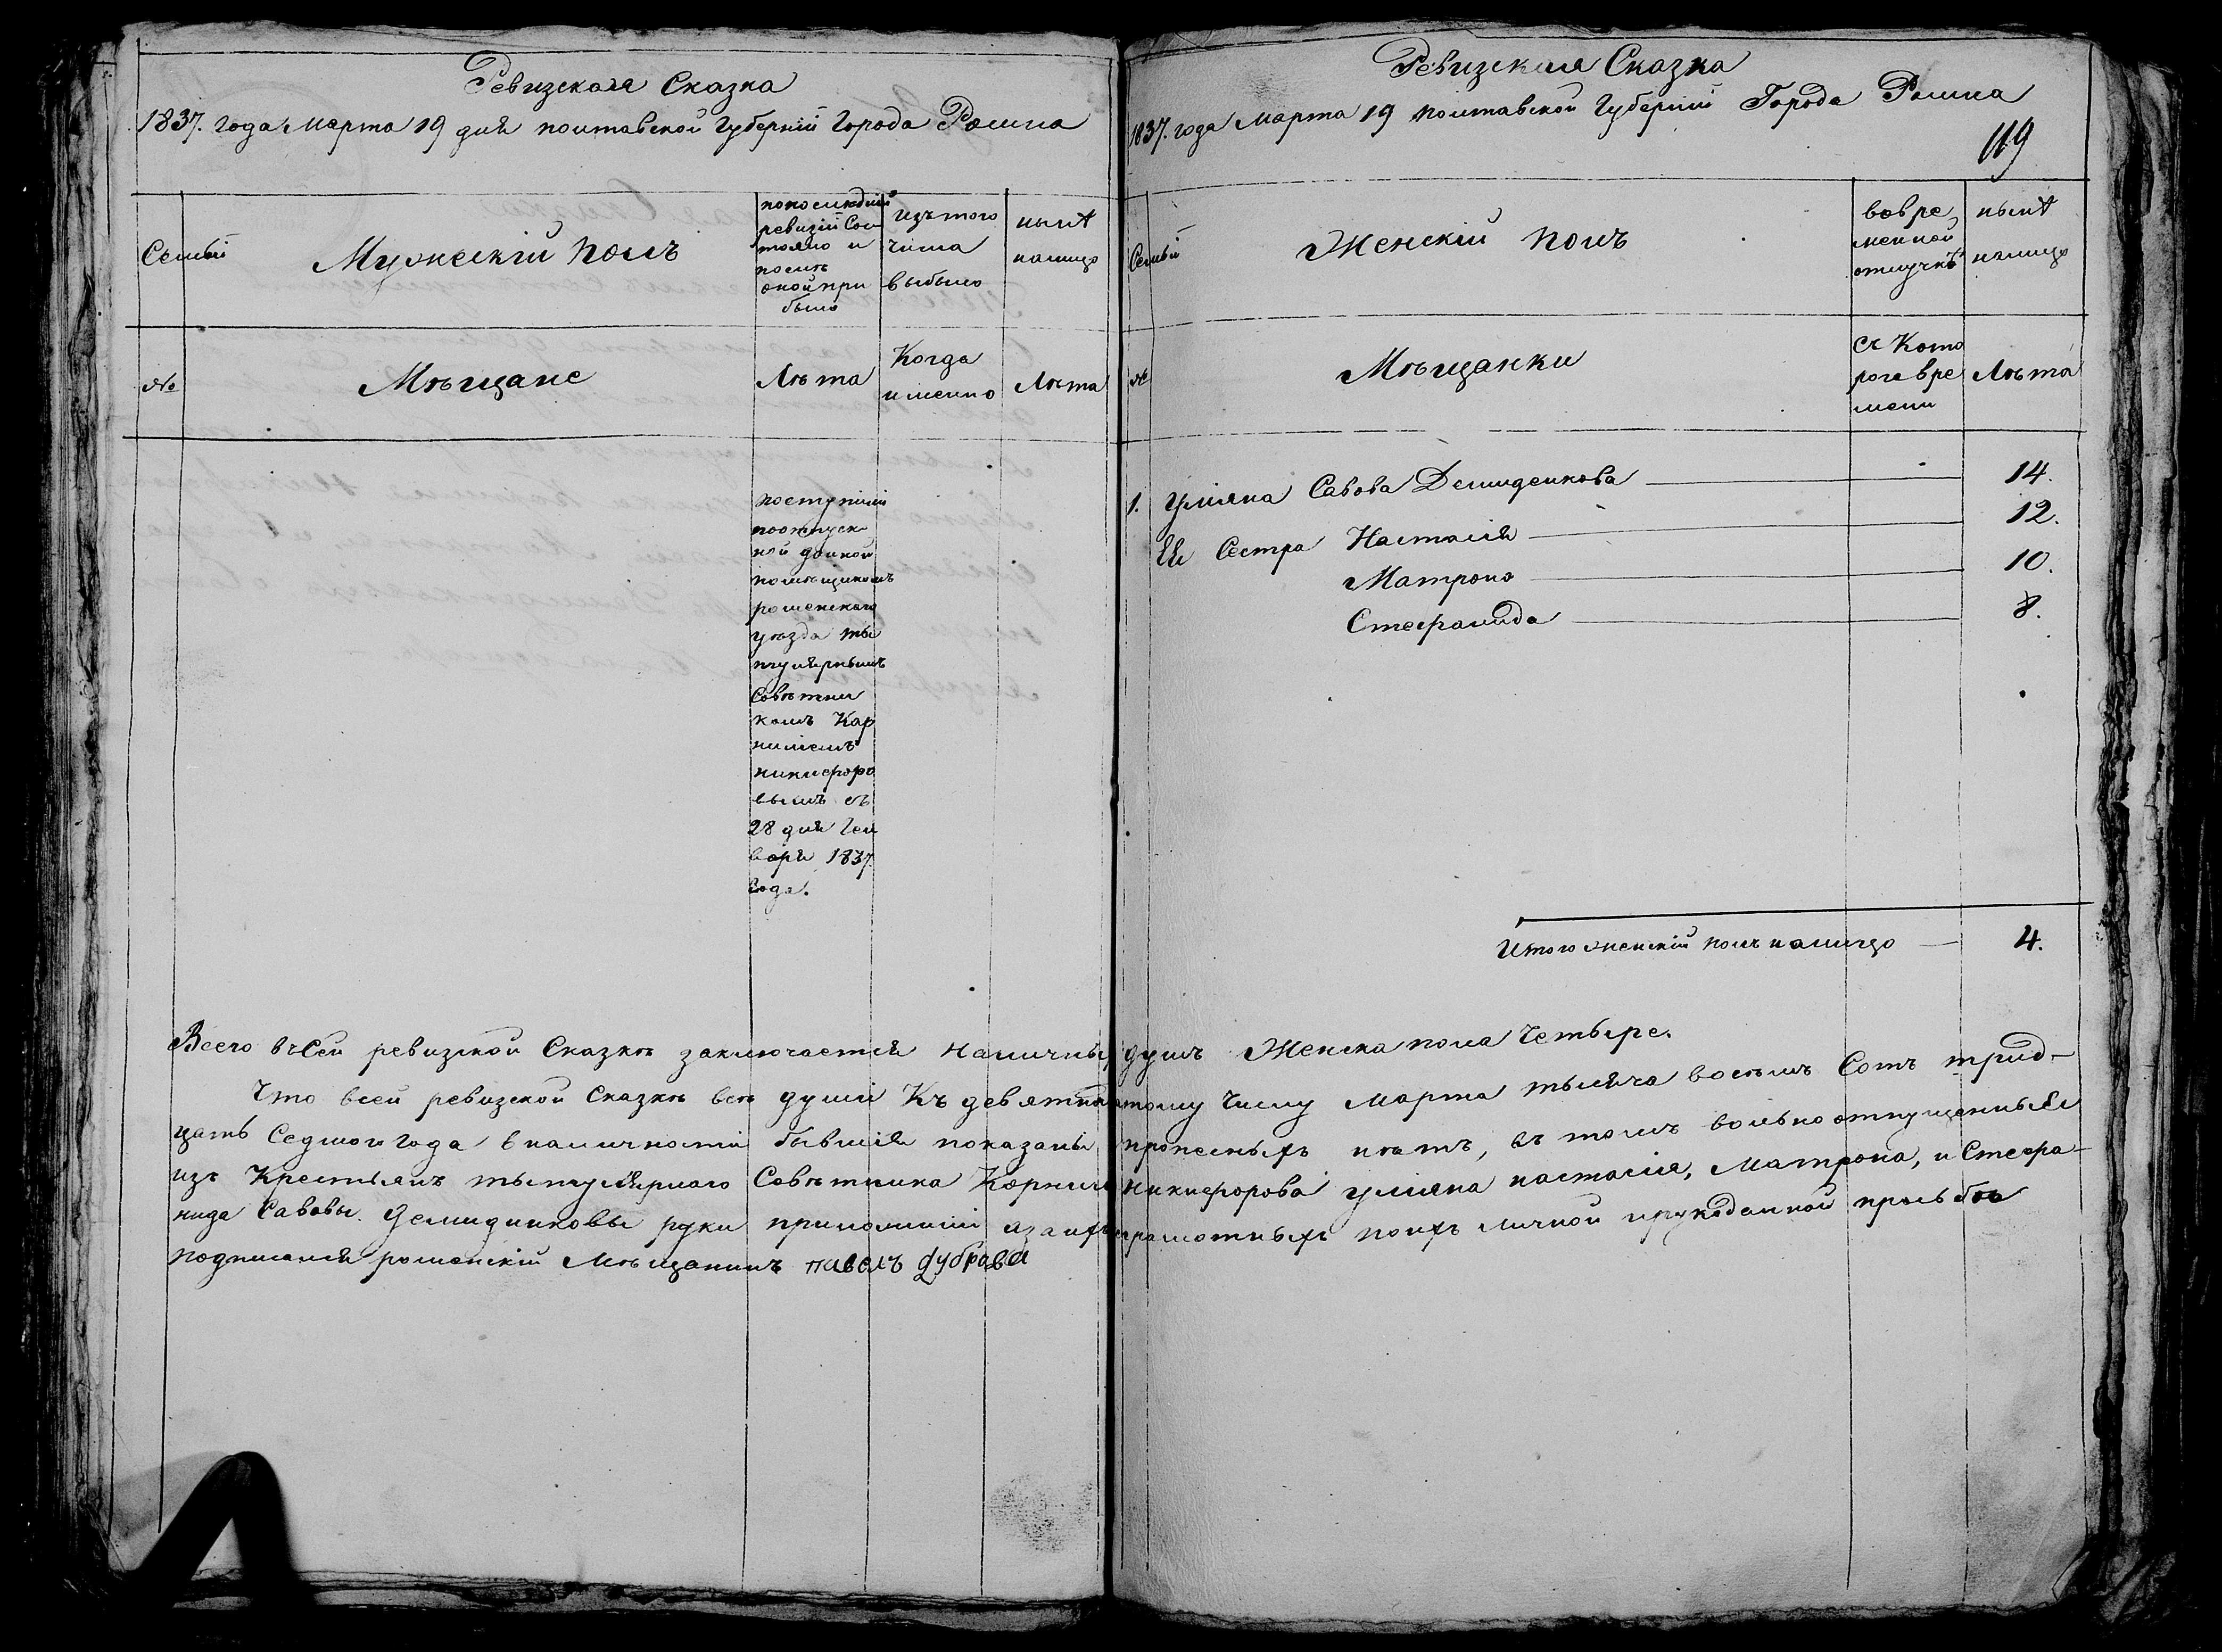 Ревизская Сказка
1837. года Марта 19 дня полтавской Губерніи Города Ромна
Семьи
Мужескій полъ
попоследней
ревизіи Сос
тояло и
после
оной при
было
изътого
числа
выбыло
ныне
налицо
№
Мѣщане
Лѣта
Когда
именно
Лѣта
поступили
поотпуск
ной данной
помѣщикомъ
роменскаго
уѣзда ти
тулярнымъ
Совѣтни
комъ Кор
ниліемъ
никифоро
вымъ въ
28 дня Ген
варя 1837.
Года.
Ревизская Сказка
1837. года Марта 19 полтавской Губерніи Города Ромна
119
Семьи
Женскій полъ
вовре
менной
отлучкѣ
нынѣ
налицо
№
Мѣщанки
съ Кото
рога вре
мени
Лѣта
1. Уліяна Савова Демиденкова 14.
Ея Сестра Настасія 12.
Матрона 10.
Стефанида 8.
Итого женскій полъ налицо 4.
Всего въСей ревизской Сказкѣ заключается наличныхъ душъ Женска пола Четыре.
Что всей ревизской Сказкѣ всѣ души Къ девятнадцатому Числу Марта тысяча восемъ Сотъ трид-
цать Седмого Года вналичности бывшія показаны, пропесныхъ нѣтъ, въ томъ вольноотпущенныя
изъ Крестьянъ титулярнаго Совѣтника Корнилія никифорова уліяна настасія, Матрона, и Стефа-
нида Савовы Демиденковы руки приложили азаихъ неграмотныхъ поихъ личной ирукоданной прозьбѣ
подписался роменскій Мѣщанинъ павелъ дубрава